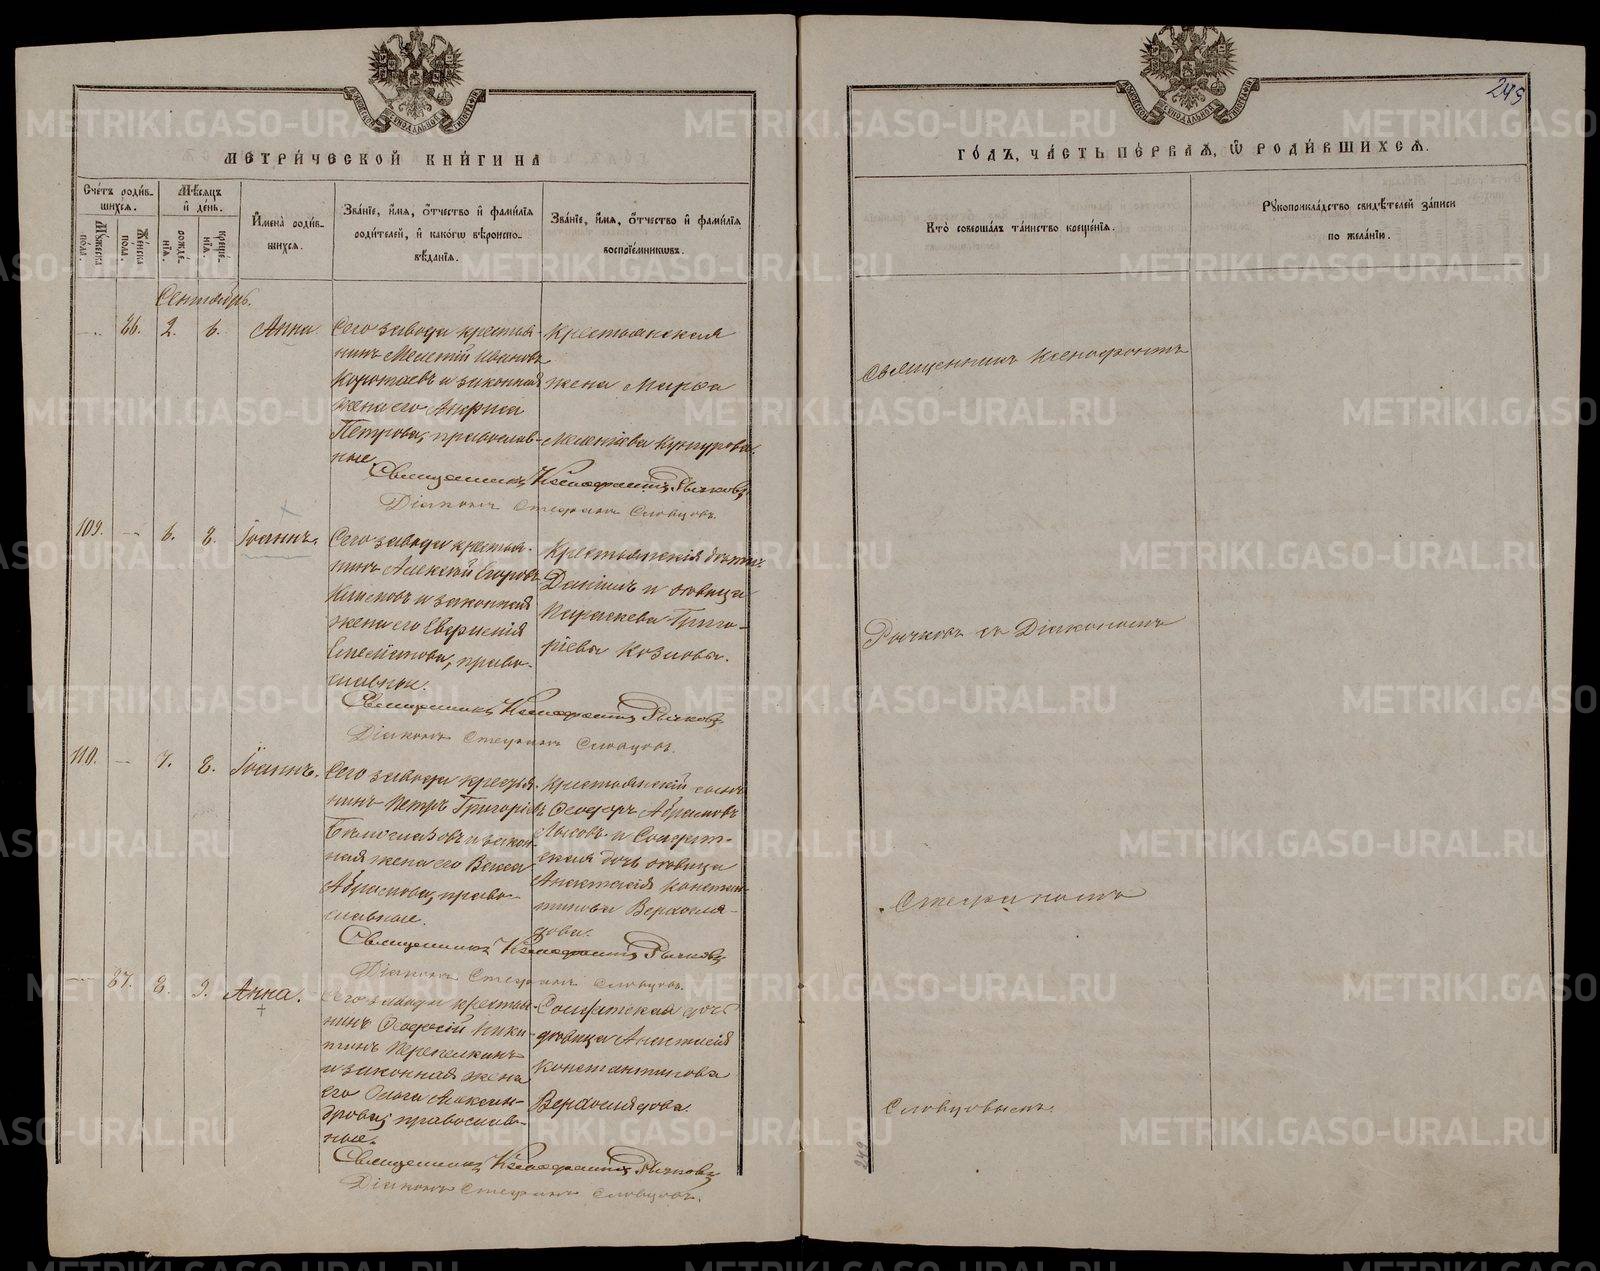 МЕТРИ́ЧЕСКОЙ КНИ́ГИ НА
Сче́тъ роди́в-
шихся.
Мѣ́сяцъ
и҆ де́нь.
Му́жеска
по́ла.
Же́нска
по́ла.
рожде́-
нїя.
креще́-
нїя.
И҆мена̀ роди́в-
шихся.
Зва́нїе, и҆́мя, ѻ҆́тчество и҆ фами́лїя
роди́телей, и҆ како́гѡ вѣроиспо-
вѣ́данїя.
Зва́нїе, и҆́мя, ѻ҆́тчество и҆ фами́лїя
воспрїе́мникѡвъ.
Сентябрь.
86. 2. 6. Анна
Сего завода крестья-
нинъ Мелетій Ивановъ
Коротаевъ и законная
жена его Анфиса
Петрова, православ-
ные.
Крестьянская
жена Марѳа
Мелентіева Кунгурова.
Священникъ Ксенофонтъ Рычковъ
Діаконъ Стефанъ Словцовъ.
109. 6. 8. Іоаннъ.
Сего завода крестья-
нинъ Алексѣй Егоровъ
и законная
жена его Евфимія
право-
славные.
Крестьянскія дѣти:
Даніилъ и дѣвица
Параскева Григо-
ріевы Козловы.
Священникъ Ксенофонтъ Рычковъ
Діаконъ Стефанъ Словцовъ.
110. 7. 8. Іоаннъ.
Сего завода крестья-
нинъ Петръ Григоріевъ
Бѣлоглазовъ и закон-
ная жена его Васса
Абрамова, право-
славные.
Крестьянскій сынъ
Ѳеодоръ Абрамовъ
Лысовъ и Солдат-
ская дочь дѣвица
Анастасія Констан-
тинова Верхоля-
дова.
Священникъ Ксенофонтъ Рычковъ
Діаконъ Стефанъ Словцовъ.
87. 8. 9. Анна.
Сего завода крестья-
нинъ Ѳеодосій Ники-
тинъ Перепелкинъ
и законная жена
его Ольга Алексан-
дрова, православ-
ные.
Солдатская дочь
дѣвица Анастасія
Константинова
Верхолядова.
Священникъ Ксенофонтъ Рычковъ
Діаконъ Стефанъ Словцовъ.
245
ГО́ДЪ, ЧА́СТЬ ПЕ́РВАЯ, Ѽ РОДИ́ВШИХСЯ.
Кто̀ соверша́лъ та́инство креще́нїя.
Рꙋкоприкла́дство свидѣ́телей за́писи
по жела́нїю.
Священникъ Ксенофонтъ
Рычковъ съ Діакономъ
Стефаномъ
Словцовымъ.
METRIKI.GASO-URAL.RU